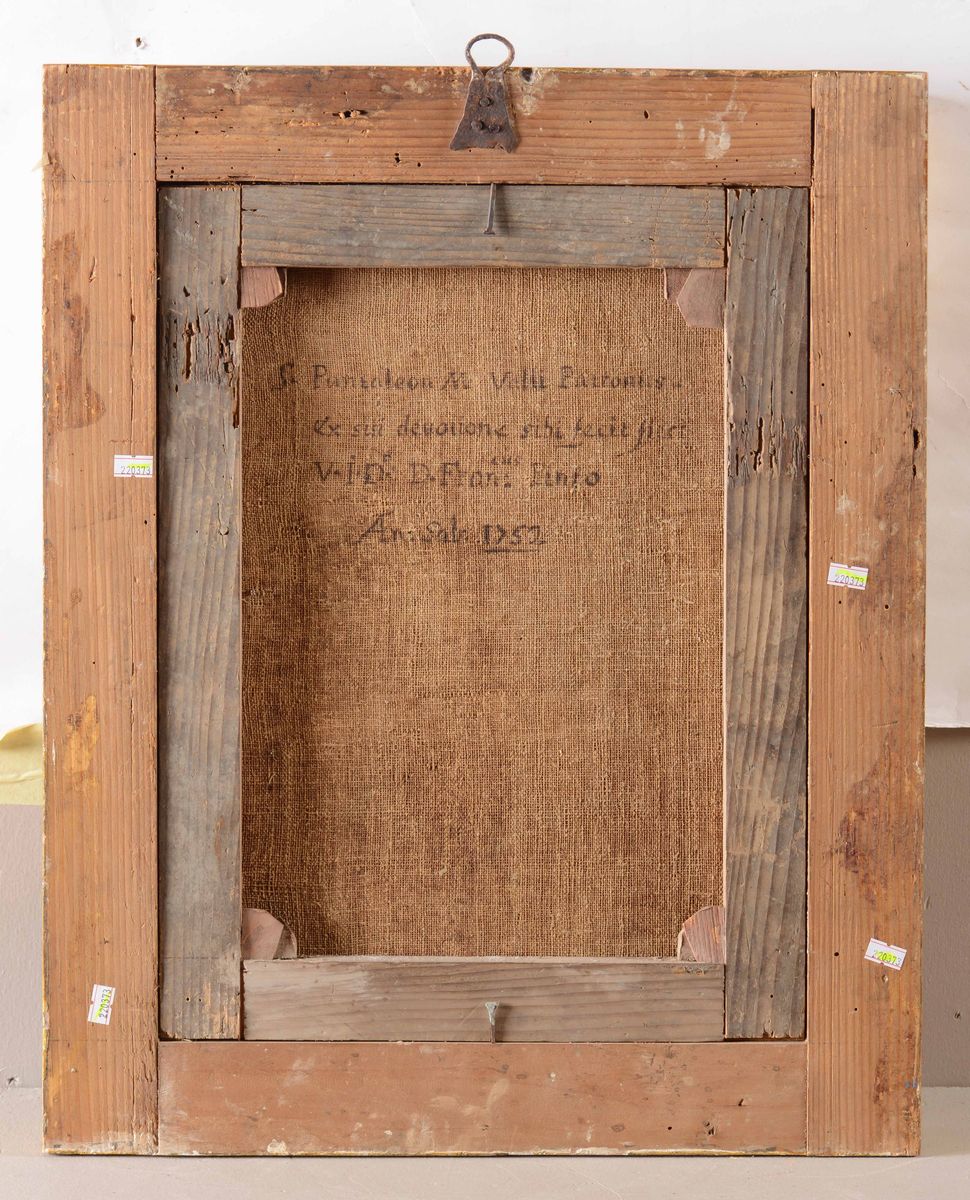 S. Pantaleon M Patronus.
ex sui devotione sibi fecit
V.J.Dr. D. Fran.cus Pinto
An: Sal: 1752
220373
220373
220373
220373